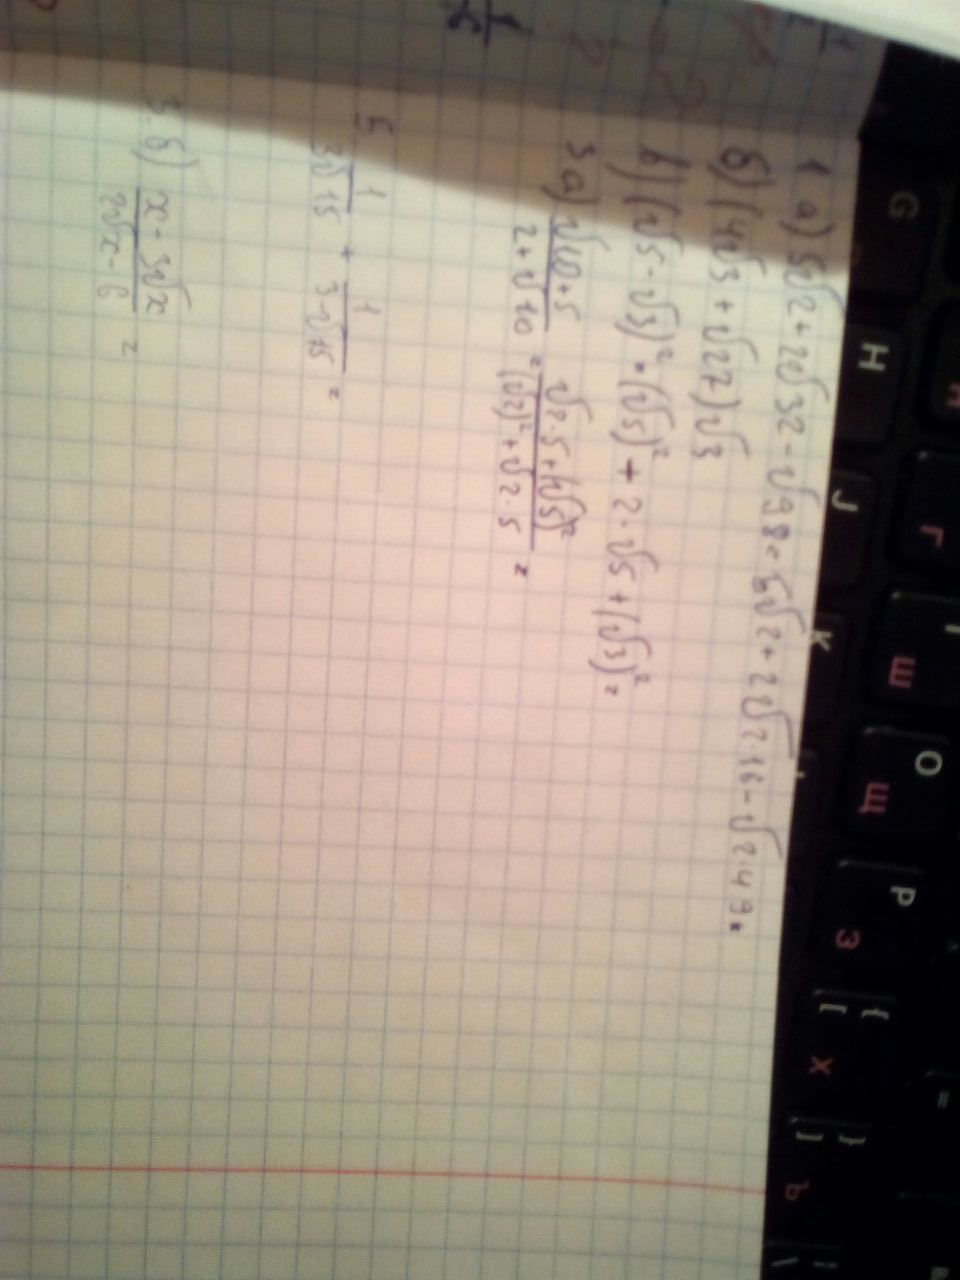 1 а) 5√2 + 2√32 - √98 = 5√2 + 2√2·16 - √2·49 =
б) (4√3 + √27)√3
в) (√5 - √3)² = (√5)² + 2·√5 + (√3)² =
3 а) √10+5 / 2+√10 = √2·5+(√5)² / (√2)²+√2·5 =
5 1 / 3√15 + 1 / 3-√15 =
3. б) x - 3√x / 2√x - 6 =
G
H
J
K
O
P
Г
Ш
Щ
З
Х
Ъ
{
[
}
]
=